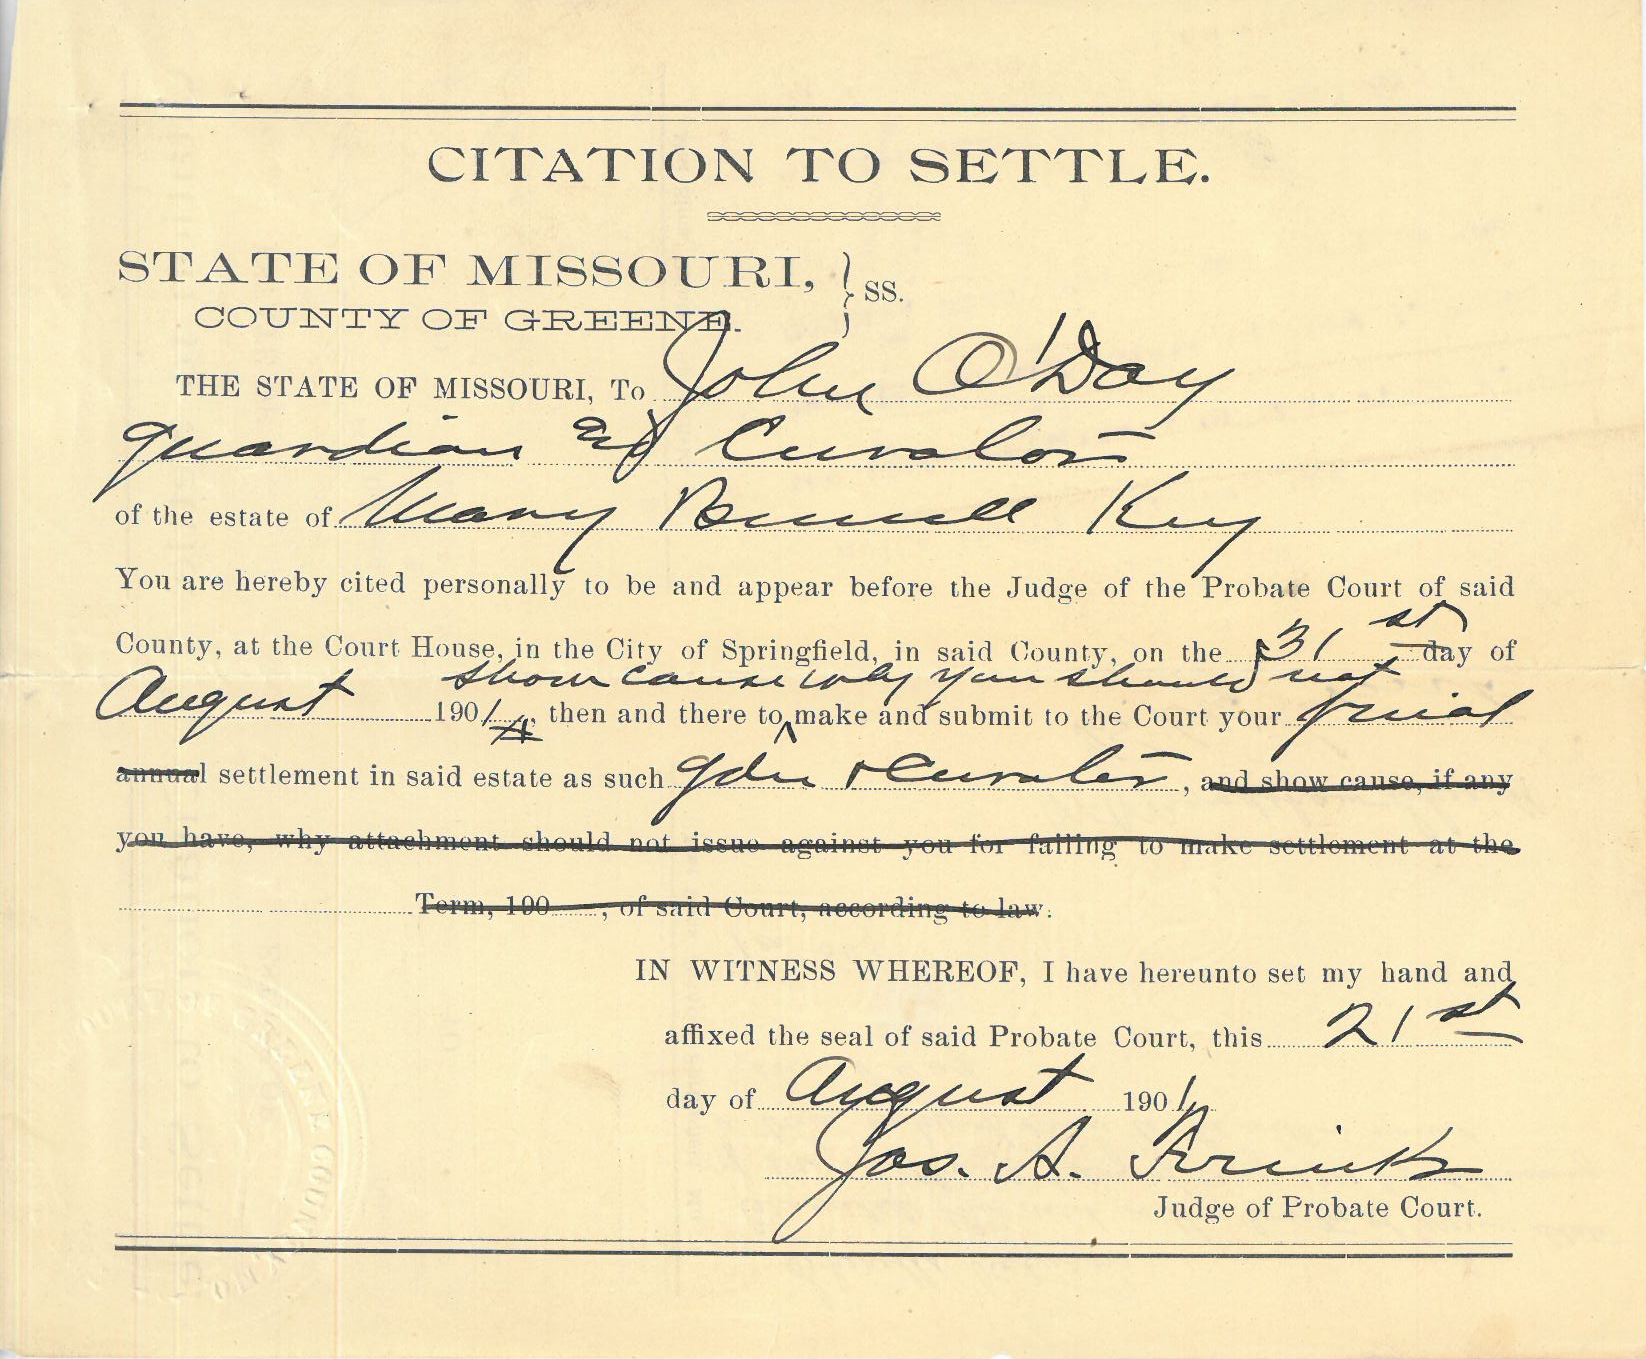 CITATION TO SETTLE.
STATE OF MISSOURI, } SS.
COUNTY OF GREENE.
THE STATE OF MISSOURI, To John O'Day
guardian and Curator
of the estate of Mary Key
You are hereby cited personally to be and appear before the Judge of the Probate Court of said
County, at the Court House, in the City of Springfield, in said County, on the 31st day of
show cause why you should not
August 1901, then and there to make and submit to the Court your final
annual settlement in said estate as such gdn & Curator, and show cause, if any
you have, why attachment should not issue against you for failing to make settlement at the
Term, 190 , of said Court, according to law.
IN WITNESS WHEREOF, I have hereunto set my hand and
affixed the seal of said Probate Court, this 21st
day of August 1901
Jos. A. Frink
Judge of Probate Court.